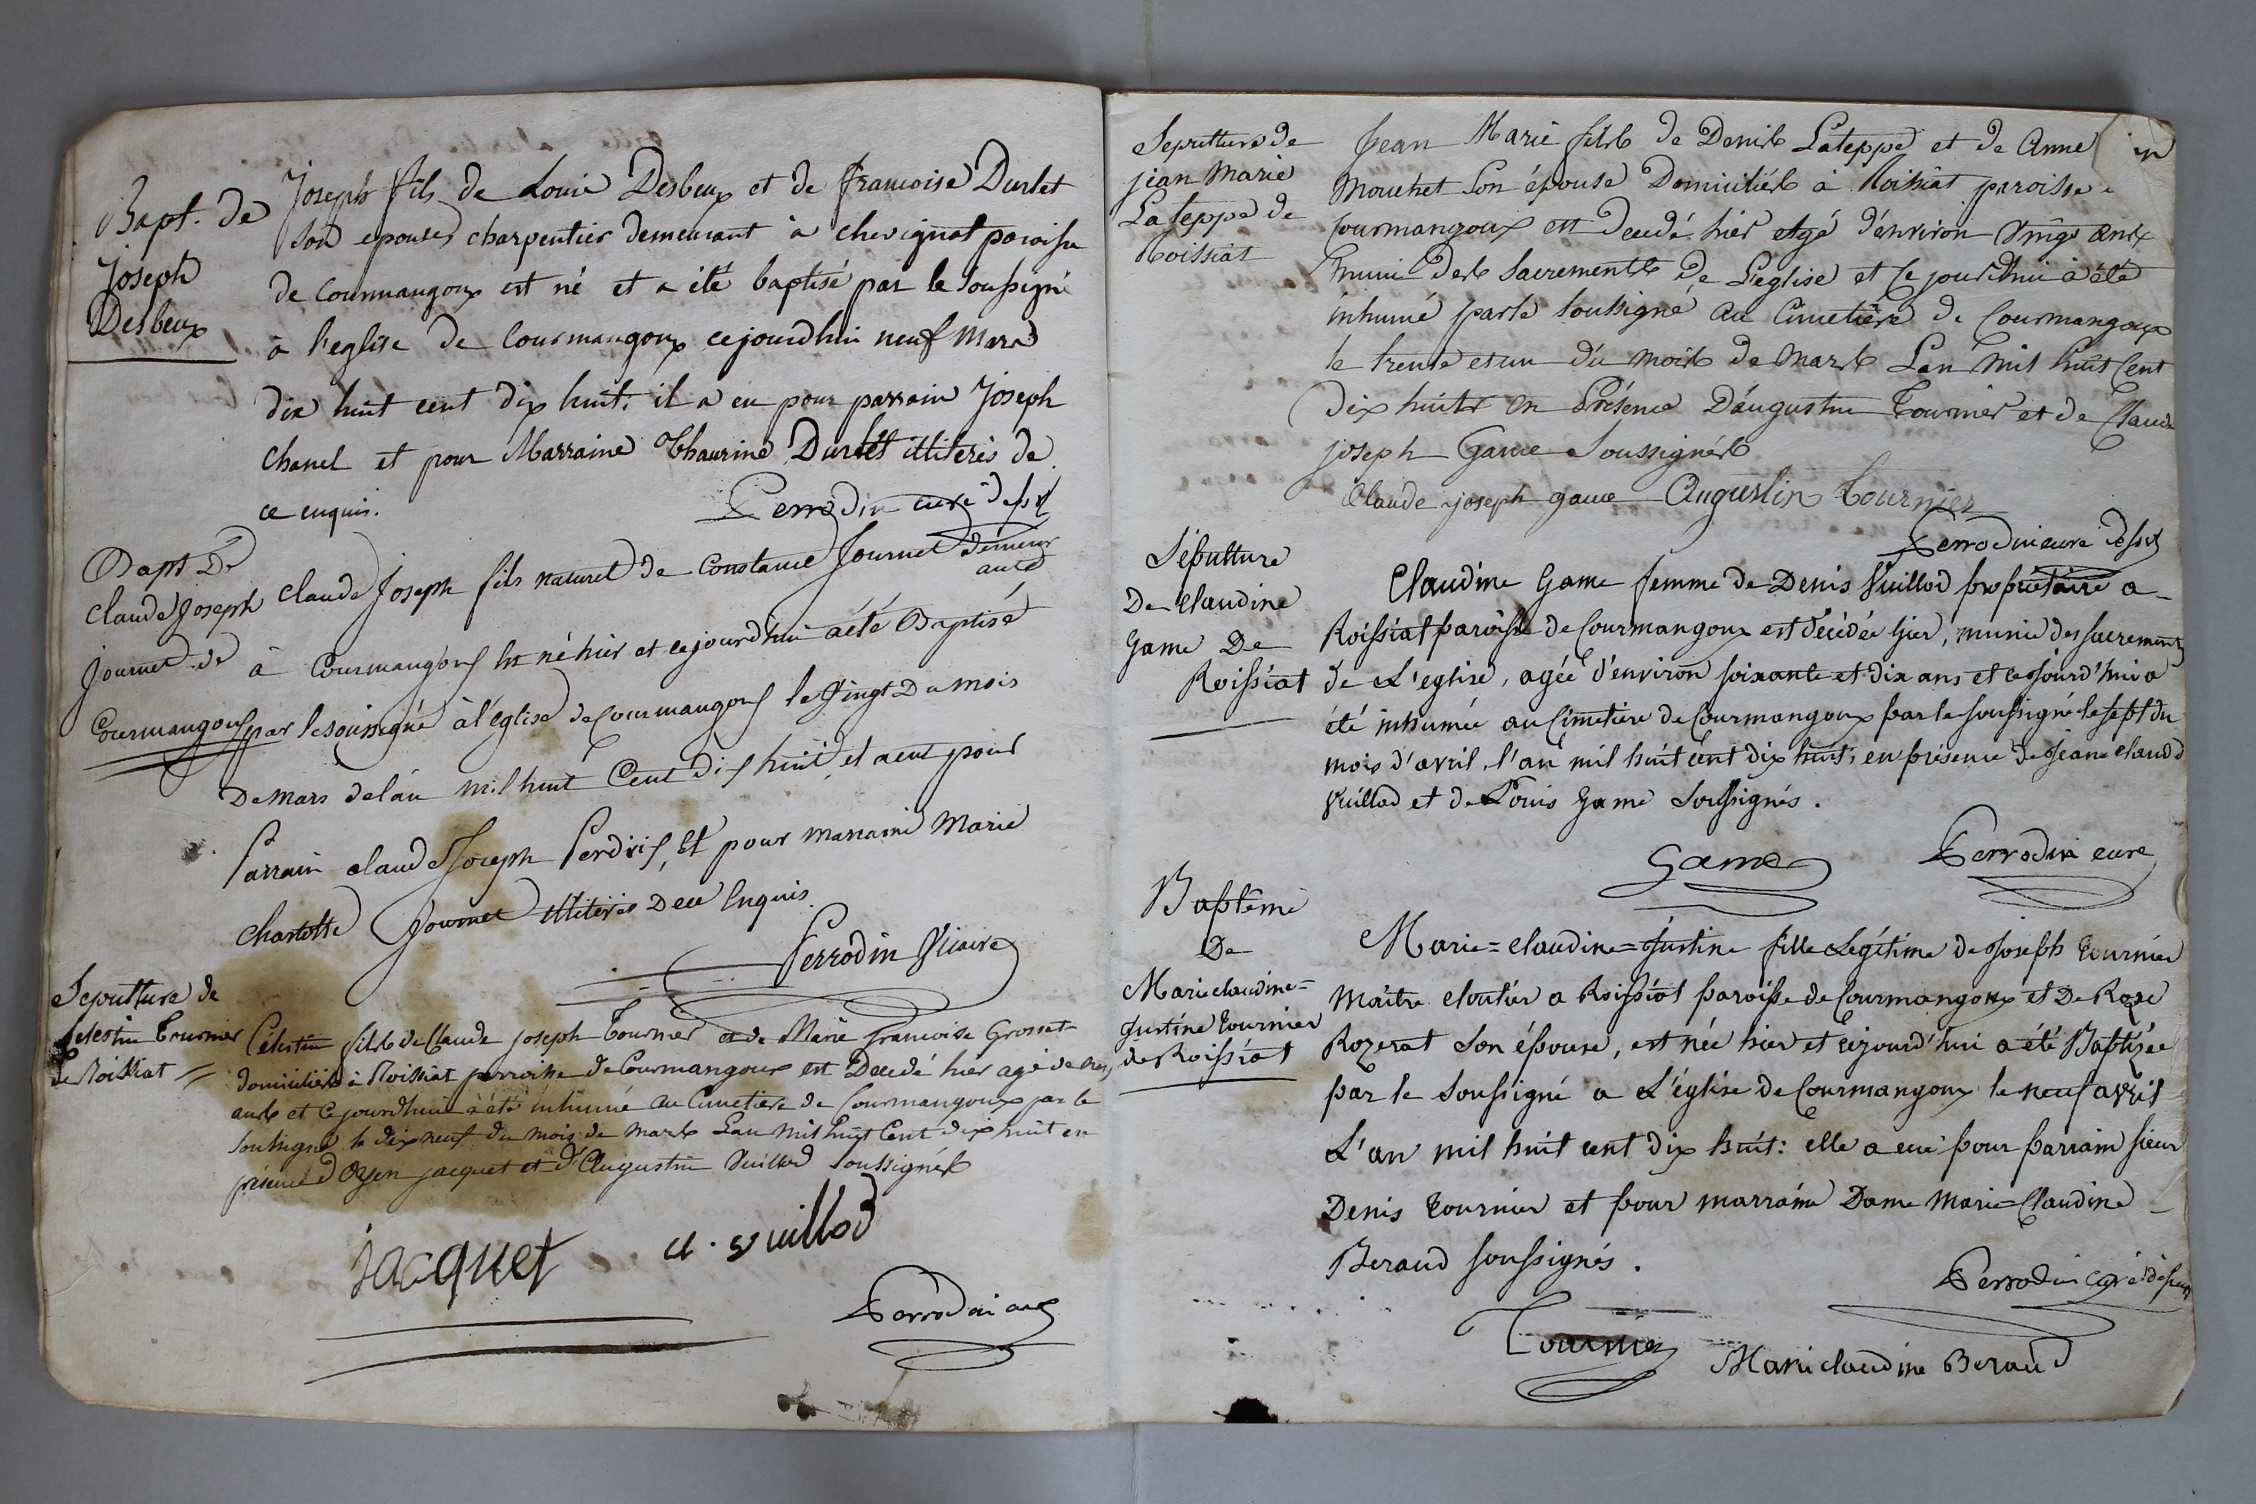 Bapt. de
Joseph
Desbeux
Joseph fils de Louis Desbeux et de francoise Durlet
son epouse charpentier demeurant à chevignat paroisse
de Courmangoux est né et a été baptisé par le soussigné
à l'eglise de Courmangoux cejourdhui neuf Mars
dix huit cent dix huit, il a eu pour parrain Joseph
chanel et pour Marraine Thaurine Durlet illiterés de
ce enquis.
Perrodin curé dess
Bapt De
Claude Joseph
Journet de
Courmangoux
Claude Joseph fils naturel de Constance Journet demeur
ante
à Courmangoux est né hier et cejourdhui a été Baptisé
par le soussigné à l'église de Courmangoux le Vingt Du mois
De mars de l'an mil huit Cent dix huit, il a eut pour
Parrain claude Joseph Perdrix, Et pour marraine Marie
charlotte Journet illiterés De ce Enquis.
Perrodin Vicaire
Sepulture de
Celestin Tournier
de Roissiat
Célestin fils de Claude joseph Tournier et de Marie francoise Grosset
domiciliés à Roissiat parroisse de Courmangoux est Decedé hier agé de
ans et Cejourdhui à été inhumé au Cimetiere de Courmangoux par le
soussigné le dix neuf du mois de mars Lan mil huit Cent dix huit en
présence d'Oyen jacquet et d'Augustin Vuillod soussignés
jacquet a. vuillod
Perrodin curé
Sepulture de
jean Marie
Lateppe de
Roissiat
Jean Marie fils de Denis Lateppe et de Anne
Mouchet son épouse Domiciliés à Roissiat paroisse
Courmangoux est decedé hier agé d'environ Vingt ans
muni des sacrements de L'eglise et Ce jourdhui à été
inhumé par le soussigné au Cimetière de Courmangoux
le trente et un du mois de Mars Lan mil huit Cent
Dix huit en Présence D'augustin Tournier et de Claude
joseph Game Soussignés
Claude joseph game Augustin Tournier
Perrodin curé dess
Sépulture
De Claudine
Game De
Roissiat
Claudine Game femme de Denis Vuillod propriétaire a
Roissiat paroisse de Courmangoux est décédée hier, munie des sacrements
de L'eglise, agée d'environ soixante et dix ans et cejourd'hui a
été inhumée au Cimetiere de Courmangoux par le soussigné le sept du
mois d'avril, l'an mil huit cent dix huit, en présence de Jean claude
Vuillod et de Louis Game soussignés.
Game Perrodin curé
Baptême
De
Marie claudine=
Justine Tournier
de Roissiat
Marie=claudine=Justine fille Légitime de Joseph Tournier
Maitre cloutier a Roissiat paroisse de Courmangoux et De Roze
Rozerat son épouse, est née hier et cejourd'hui a été Baptisée
par le soussigné a L'église de Courmangoux le neuf avril
L'an mil huit cent dix huit: elle a eue pour parrain sieur
Denis Tournier et pour marraine Dame Marie=Claudine
Beraud soussignés.
Perrodin curé dess
Tournier Marie claudine Beraud